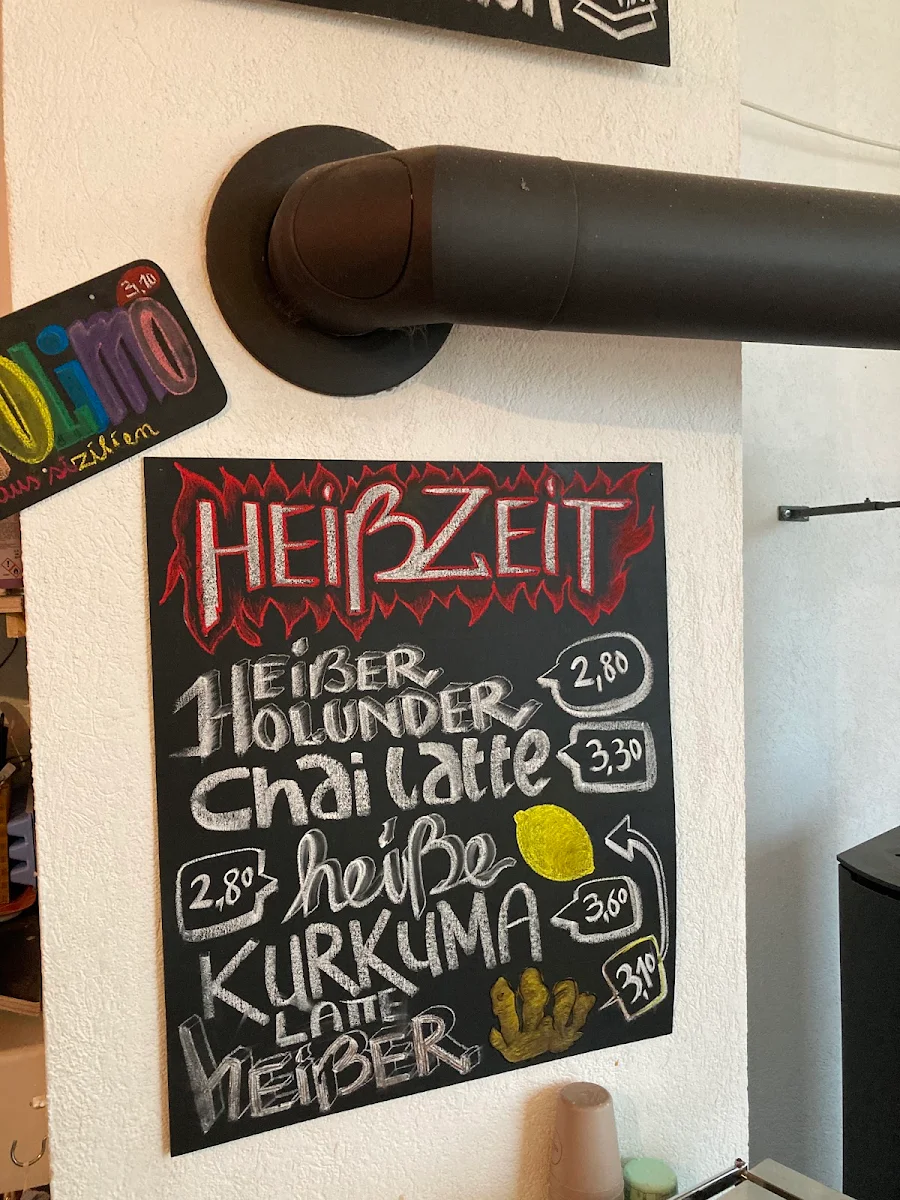 3,10
OLiMO
aus sizilien
HEißZEiT
HEißER
HOLUNDER
2,80
Chai Latte
3,30
2,80
heiße
KURKUMA
3,60
LATTE
3,10
heißER